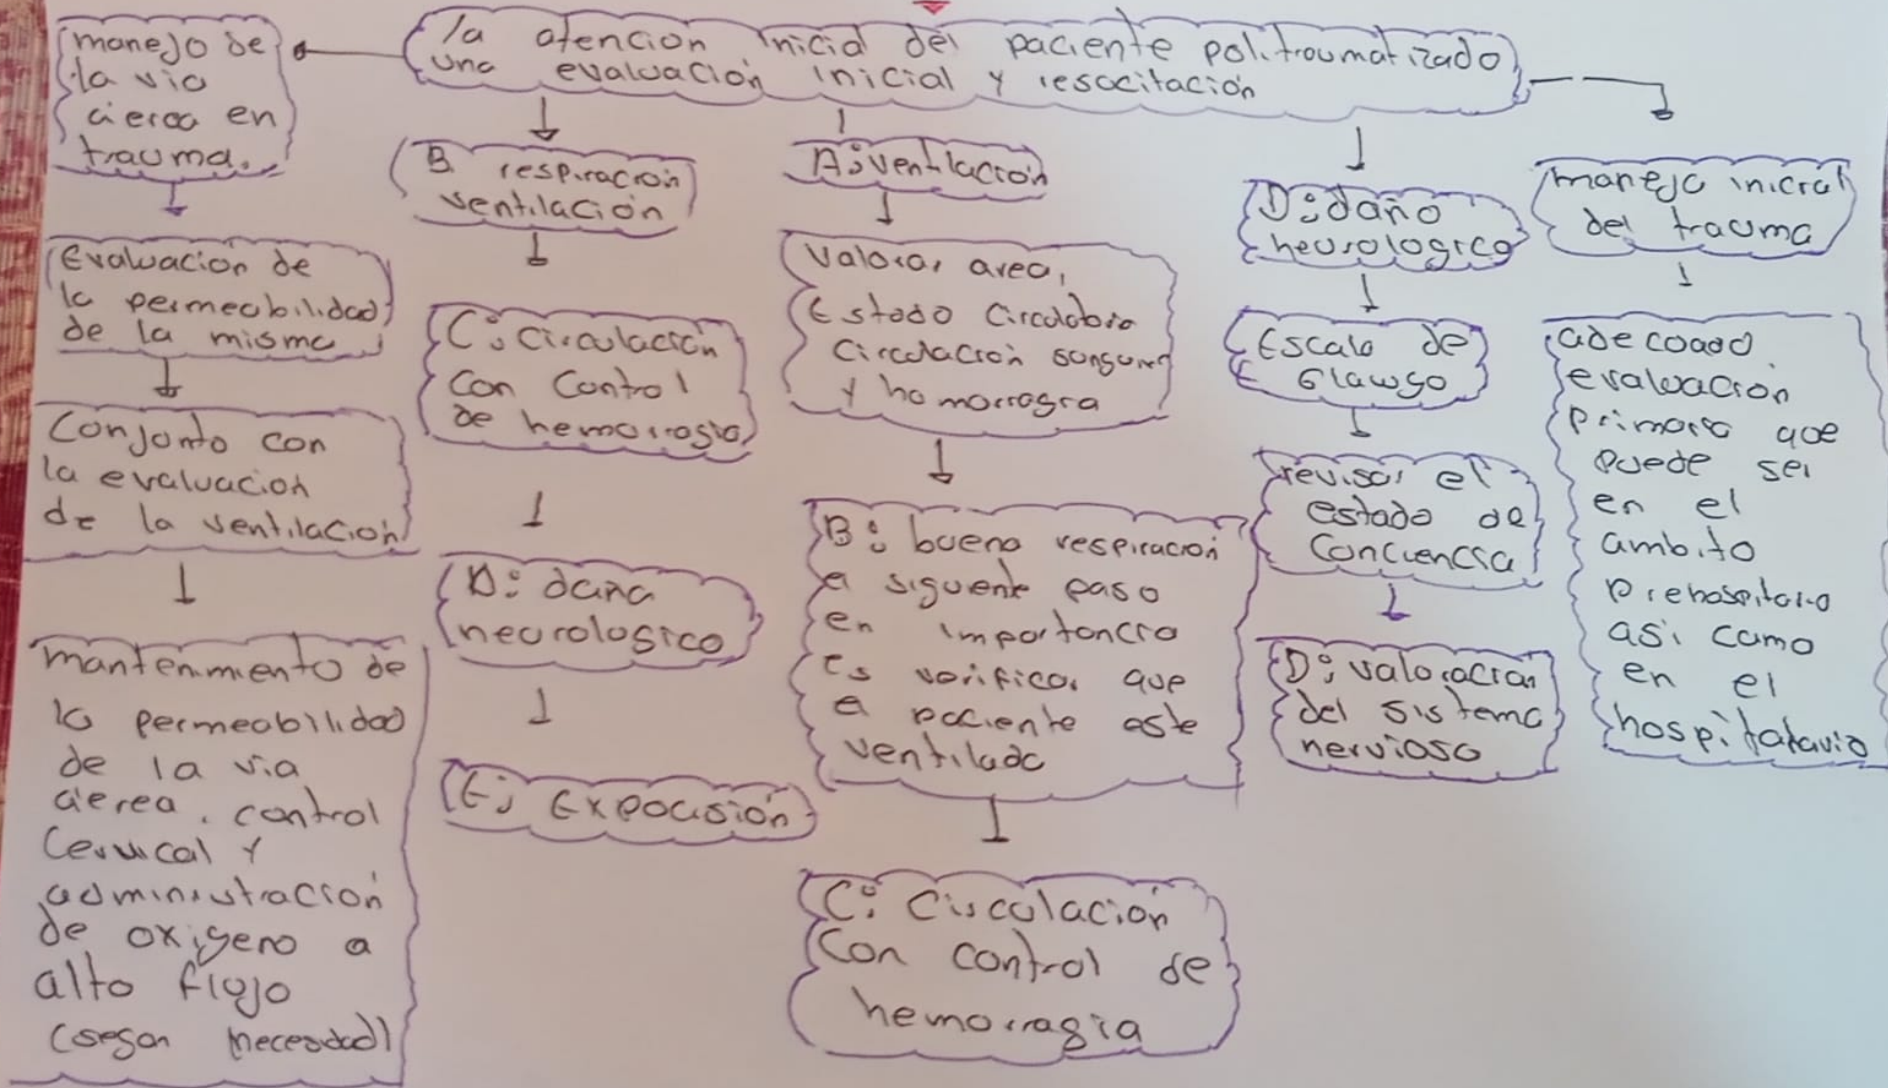 la atencion inicial del paciente politraumatizado
una evaluación inicial y resocitación
manejo de
la via
aierea en
trauma.
Evaluación de
la permeabilidad
de la misma
Conjunto con
la evaluacion
de la ventilación
mantenimiento de
la permeabilidad
de la via
aierea. control
Cervical y
administración
de oxigeno a
alto flujo
(segon necesidad)
B respiración
ventilación
C: Circulación
Con Control
de hemorragia
D: daña
neurologico
E: Expocisión
A: ventilación
Valorar area,
Estado Circolatorio
Circulación
y homorragia
B: buena respiración
el siguente paso
en importancia
es verificar que
el paciente este
ventilado
C: Circulación
Con control de
hemorragia
D: daño
neurologico
Escala de
Glawgo
revisar el
estado de
Conciencia
D: valoración
del sistema
nervioso
manejo inicial
del trauma
adecoado
evaluación
primaria que
puede ser
en el
ambito
prehospitario
asi como
en el